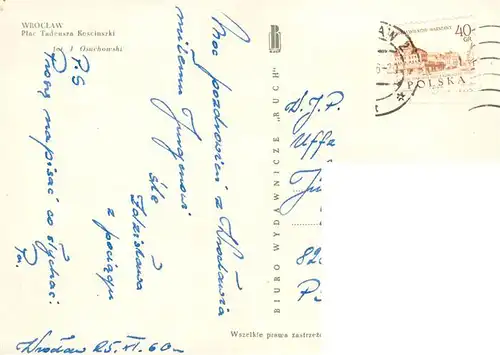 WROCŁAW
Plac Tadeusza Kościuszki
fot. J. Osuchowski
Moc pozdrowień z Wrocławia
miłemu Jurgenowi
śle
Zdzisława
z pociągu
P.S
Proszę napisać co słychać.
Wrocław 25. XI. 60
BIURO WYDAWNICZE "RUCH"
Wszelkie prawa zastrzeż
40
GR
POLSKA
D. J. P.
Uffa
82